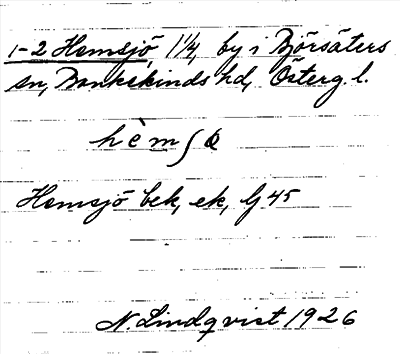 1-2 Hemsjö 1 1/4, by i Björsäters
sn, Bankekinds hd, Österg. l.
hèmʃö
Hemsjö bek, ek, Gj 45
N. Lindqvist 1926